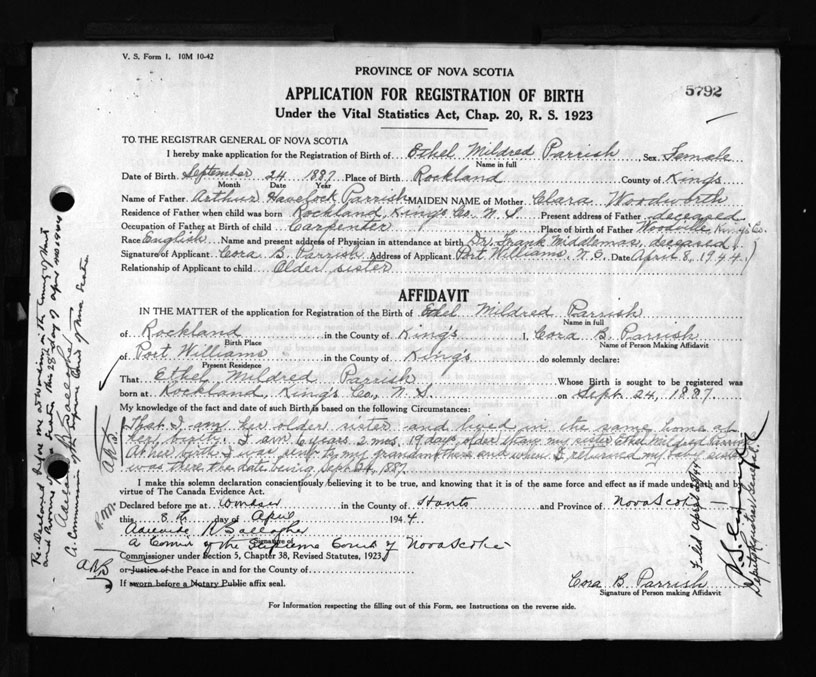 V. S. Form 1. 10M 10-42
PROVINCE OF NOVA SCOTIA
5792
APPLICATION FOR REGISTRATION OF BIRTH
Under the Vital Statistics Act, Chap. 20, R. S. 1923
TO THE REGISTRAR GENERAL OF NOVA SCOTIA
I hereby make application for the Registration of Birth of Ethel Mildred Parrish, Sex Female
Name in full
Date of Birth September 24 1887 Place of Birth Rockland County of Kings
Month Date Year
Name of Father Arthur Havelock Parrish MAIDEN NAME of Mother Clara Woodworth
Residence of Father when child was born Rockland, Kings Co. N. S. Present address of Father deceased
Occupation of Father at birth of child Carpenter Place of birth of Father Woodville, Kings Co.
Race English Name and present address of Physician in attendance at birth Dr. Frank Middlemas, deceased
Signature of Applicant Cora B. Parrish Address of Applicant Port Williams, N.S. Date April 8, 1944
Relationship of Applicant to child Elder sister
AFFIDAVIT
IN THE MATTER of the application for Registration of the Birth of Ethel Mildred Parrish
Name in full
of Rockland in the County of Kings I, Cora B. Parrish
Birth Place Name of Person Making Affidavit
of Port Williams in the County of Kings do solemnly declare:
Present Residence
That Ethel Mildred Parrish Whose Birth is sought to be registered was
born at Rockland, Kings Co., N. S. on Sept 24, 1887.
My knowledge of the fact and date of such Birth is based on the following Circumstances:
That I am her older sister and lived in the same home as
her family. I am 6 years 2 mos. 19 days older than my sister Ethel Mildred Parrish
At her birth I was sent to my grandmothers and when I returned my baby sister
was there the date being, Sept 24, 1887
I make this solemn declaration conscientiously believing it to be true, and knowing that it is of the same force and effect as if made under oath and by
virtue of The Canada Evidence Act.
Declared before me at Windsor in the County of Hants and Province of Nova Scotia
this 8th day of April 1944
Adelaide R Gallagher
Signature of
A Comr of the Supreme Court of Nova Scotia
Commissioner under Section 5, Chapter 38, Revised Statutes, 1923
or Justice of the Peace in and for the County of
If sworn before a Notary Public affix seal.
Cora B. Parrish
Signature of Person making Affidavit
For Information respecting the filling out of this Form, see Instructions on the reverse side.
Re Declared before me at Windsor in the County of Hants
and Province of Nova Scotia this 28th day of April A.D. 1944
Adelaide R Gallagher
A Commissioner of the Supreme Court of Nova Scotia
A.R.G.
P.M.
A.R.G.
Filed April 29/44
Deputy Registrar General